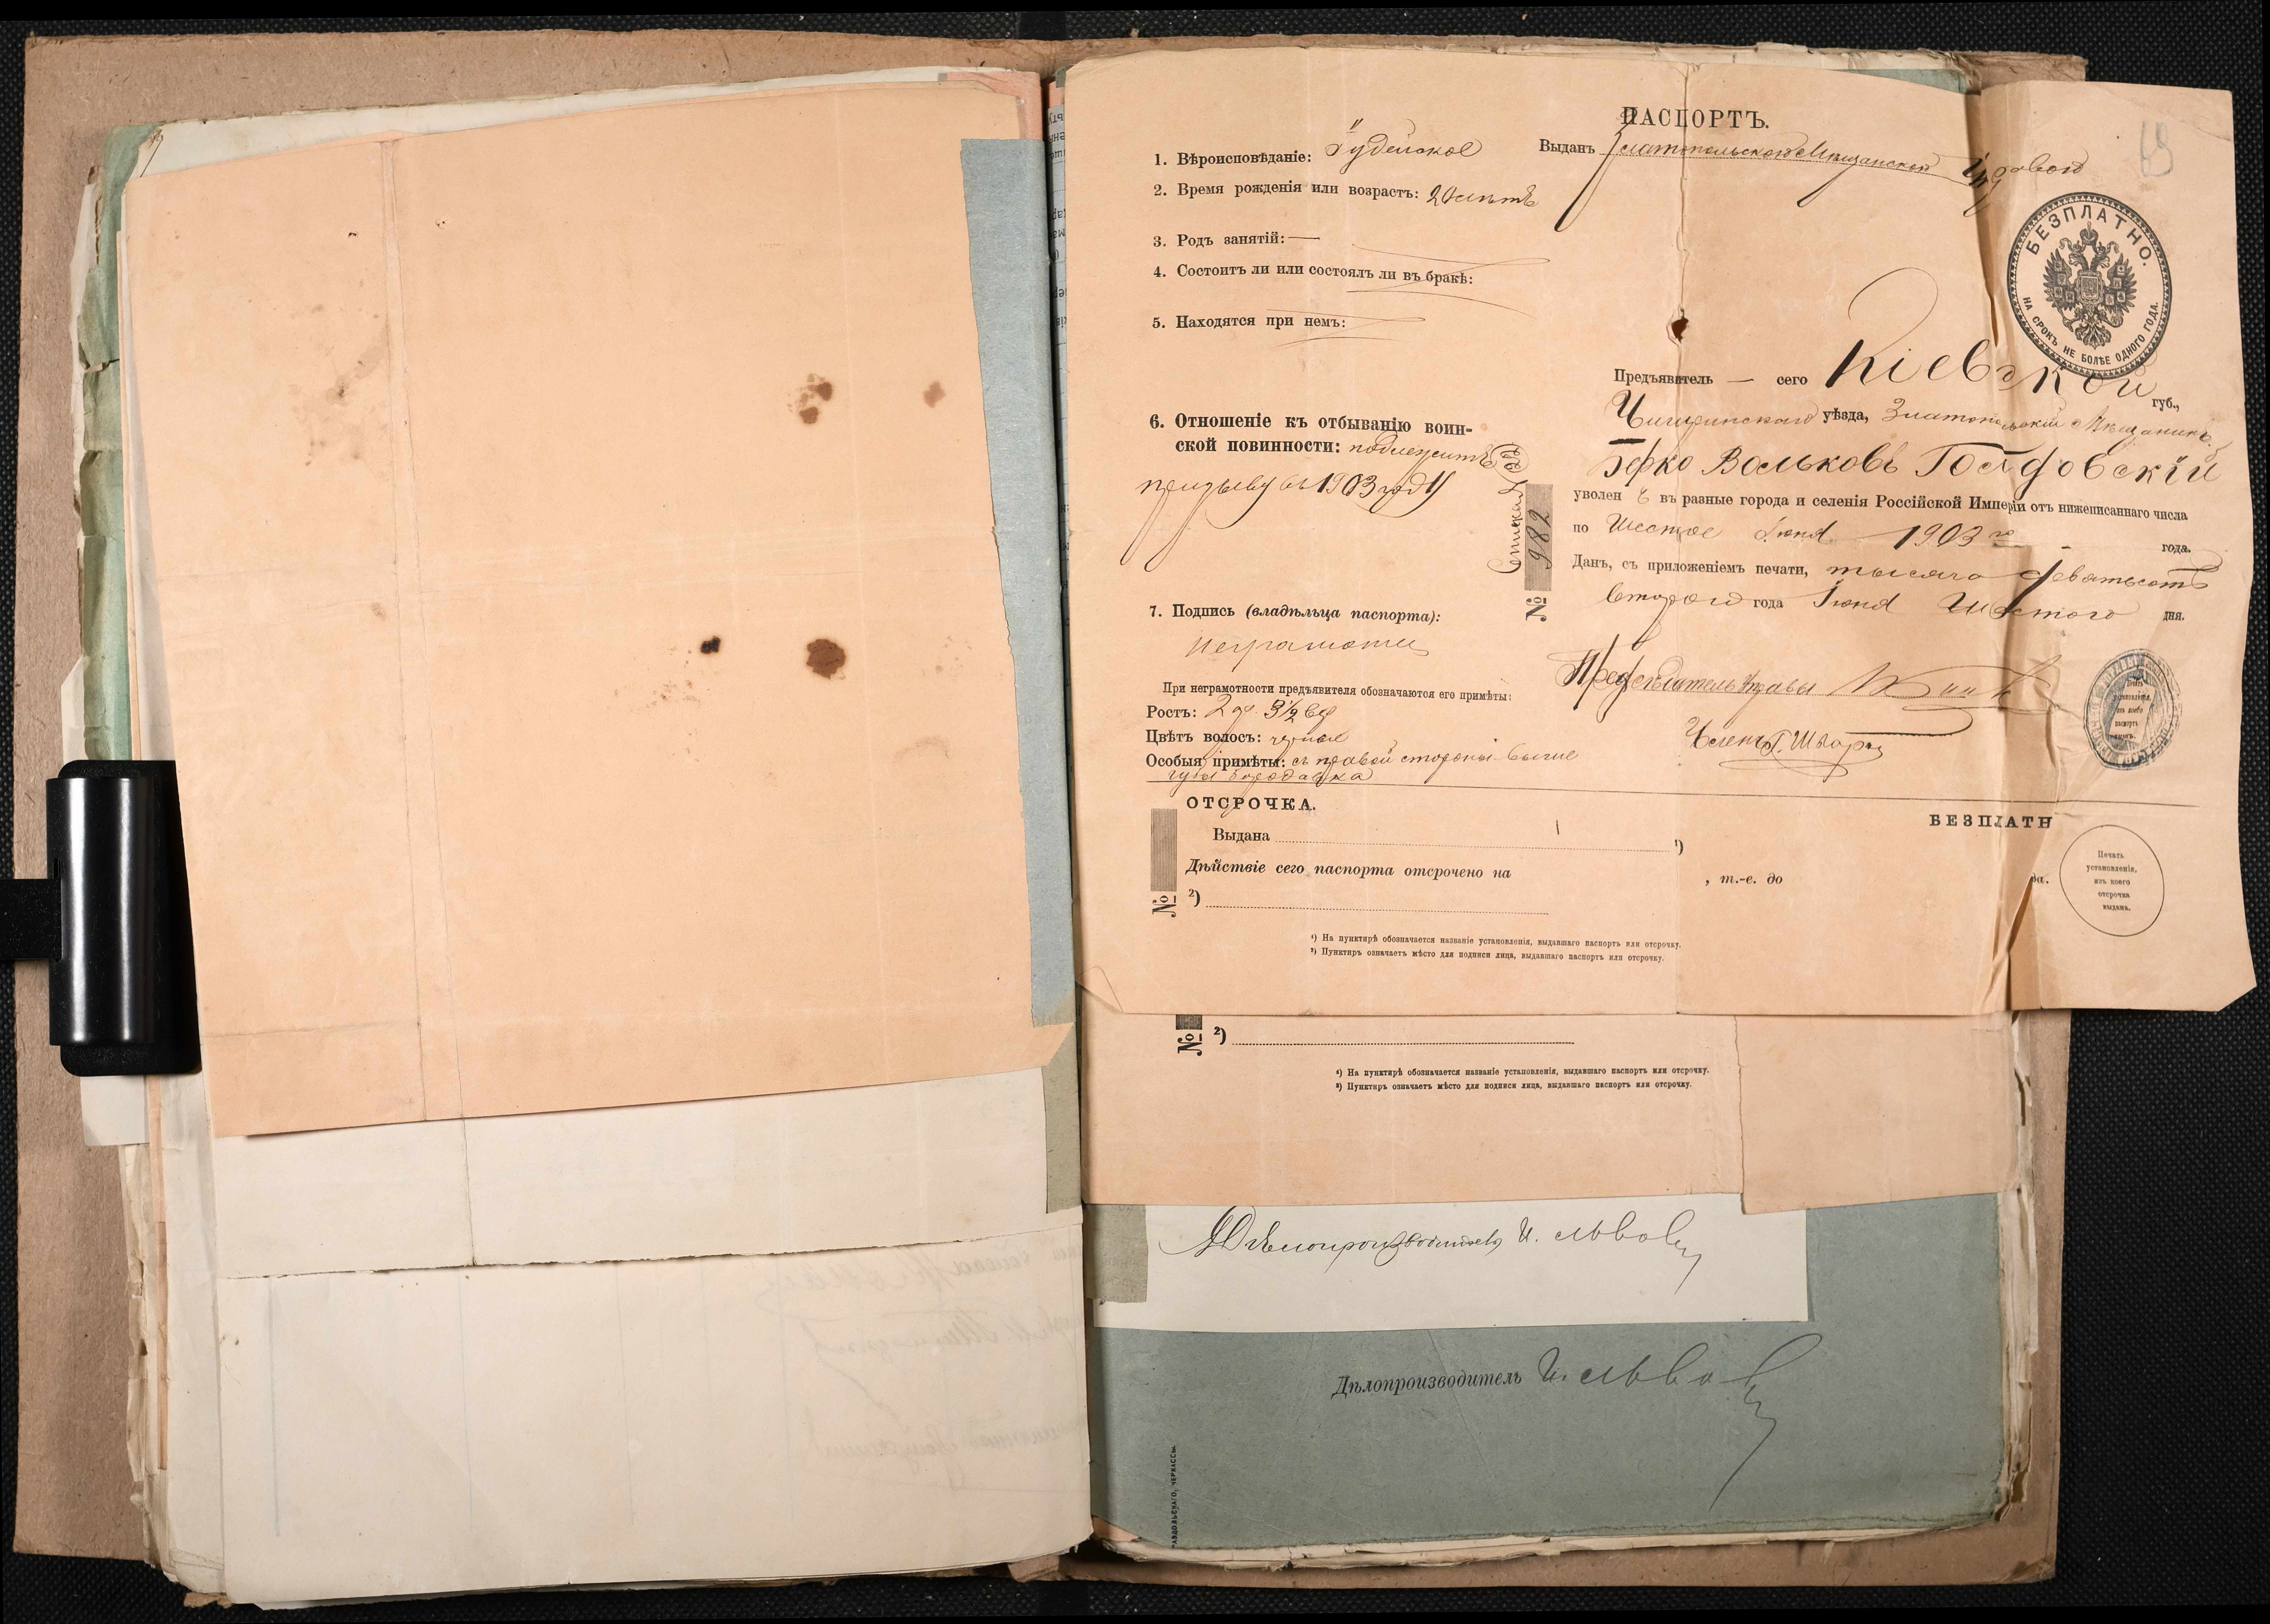 ПАСПОРТЪ.
Выданъ Златопольскою Мѣщанскою Управою
БЕЗПЛАТНО.
НА СРОКЪ НЕ БОЛѢЕ ОДНОГО ГОДА.
1. Вѣроисповѣданіе: Іудейское
2. Время рожденія или возрастъ: 20 лѣтъ
3. Родъ занятій: —
4. Состоитъ ли или состоялъ ли въ бракѣ:
5. Находятся при немъ:
6. Отношеніе къ отбыванію воин-
ской повинности: подлежитъ
призыву въ 1903 году
7. Подпись (владѣльца паспорта):
При неграмотности предъявителя обозначаются его примѣты:
Ростъ: 2 ар. 3½ вер
Цвѣтъ волосъ: черные
Особыя примѣты: съ правой стороны выше
губы бородавка
№ 982
Предъявитель — сего Кіевской губ.,
Чигиринскаго уѣзда, Златопольскій Мѣщанинъ
Берко Вольковъ
уволен ъ въ разные города и селенія Россійской Имперіи отъ нижеписаннаго числа
по Шестое Іюня 1903 го года.
Данъ, съ приложеніемъ печати, тысяча девятьсотъ
второго года Іюня Шестого дня.
Предсѣдатель Управы
Членъ
Печать
установленія,
изъ коего
паспортъ
ОТСРОЧКА.
БЕЗПЛАТН
Выдана ¹)
Дѣйствіе сего паспорта отсрочено на , т.-е. до да.
№ ²)
Печать
установленія,
изъ коего
отсрочка
выдана.
¹) На пунктирѣ обозначается названіе установленія, выдавшаго паспортъ или отсрочку.
²) Пунктиръ означаетъ мѣсто для подписи лица, выдавшаго паспортъ или отсрочку.
№ ²)
¹) На пунктирѣ обозначается названіе установленія, выдавшаго паспортъ или отсрочку.
²) Пунктиръ означаетъ мѣсто для подписи лица, выдавшаго паспортъ или отсрочку.
Дѣлопроизводитель И. Львов
Дѣлопроизводитель И. Львов